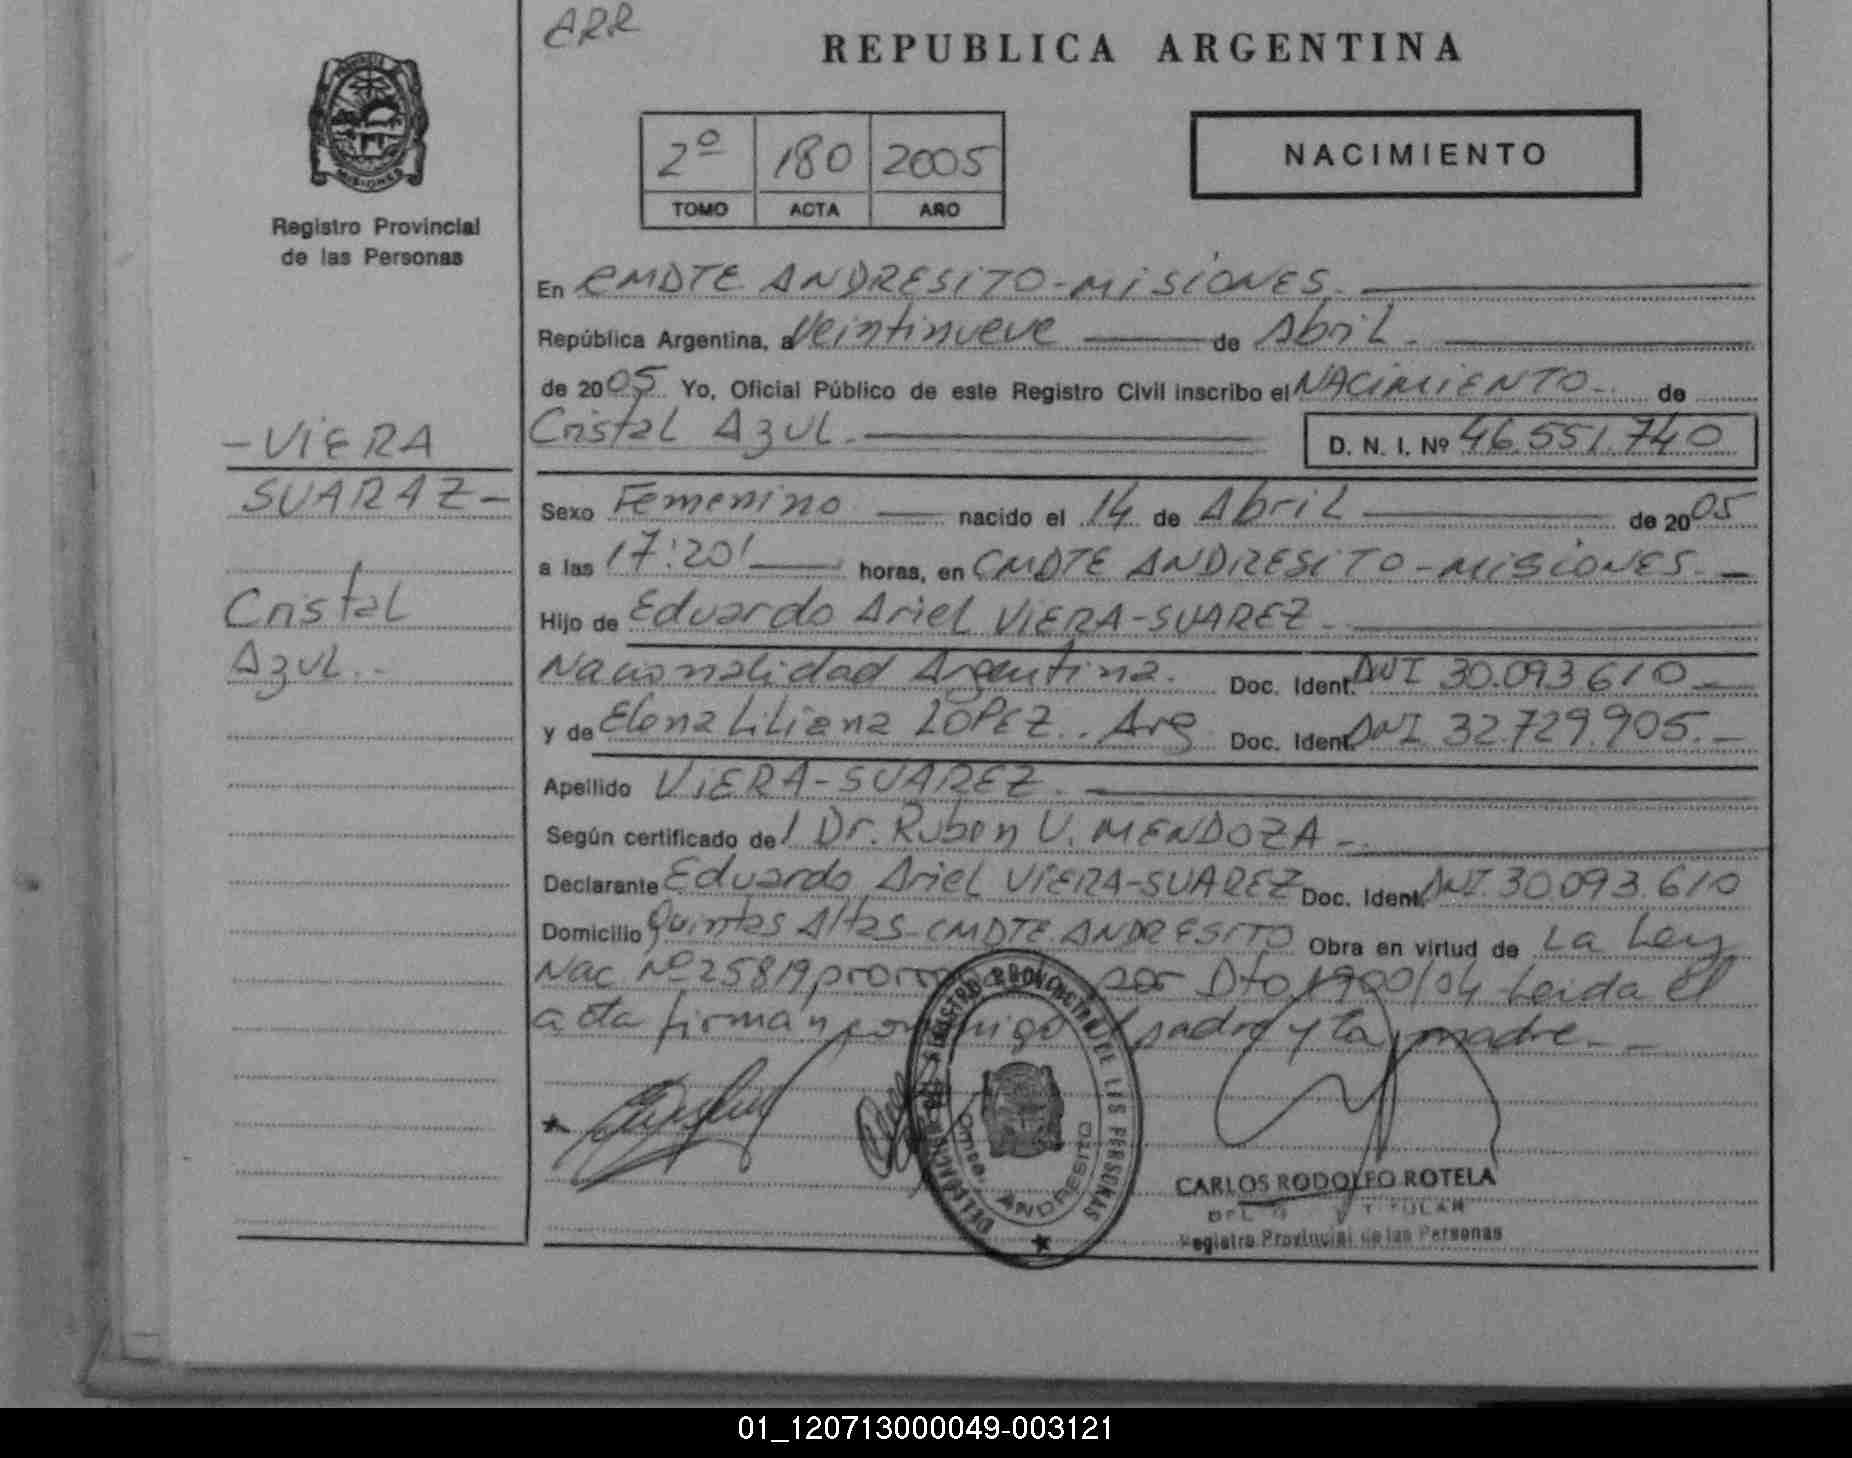 ARR
REPUBLICA ARGENTINA
2º 180 2005
TOMO ACTA AÑO
NACIMIENTO
MISIONES
Registro Provincial
de las Personas
En CMDTE ANDRESITO-MISIONES.
República Argentina, a Veintinueve de Abril.
de 2005. Yo, Oficial Público de este Registro Civil inscribo el NACIMIENTO de
Cristal Azul. D. N. I. Nº 46.551.740
-VIERA
SUARAZ-
Cristal
Azul.-
Sexo Femenino nacido el 14 de Abril de 2005
a las 17:20' horas, en CMDTE ANDRESITO-MISIONES.-
Hijo de Eduardo Ariel VIERA-SUAREZ.
Nacionalidad Argentina. Doc. Ident. DNI 30.093.610
y de Elena Liliana LOPEZ.. Arg Doc. Ident. DNI 32.729.905.-
Apellido VIERA-SUAREZ.
Según certificado del Dr. Ruben V. MENDOZA-.
Declarante Eduardo Ariel VIERA-SUAREZ Doc. Ident. DNI 30.093.610
Domicilio Quintas Altas-CMDTE ANDRESITO Obra en virtud de La Ley
Nac Nº 25819 por Dto 1900/04 Leida el
acta firman conmigo el padre y la madre.-
REGISTRO PROVINCIAL DE LAS PERSONAS
DELEGACION
Cmte. ANDRESITO
CARLOS RODOLFO ROTELA
TITULAR
Registro Provincial de las Personas
01_120713000049-003121